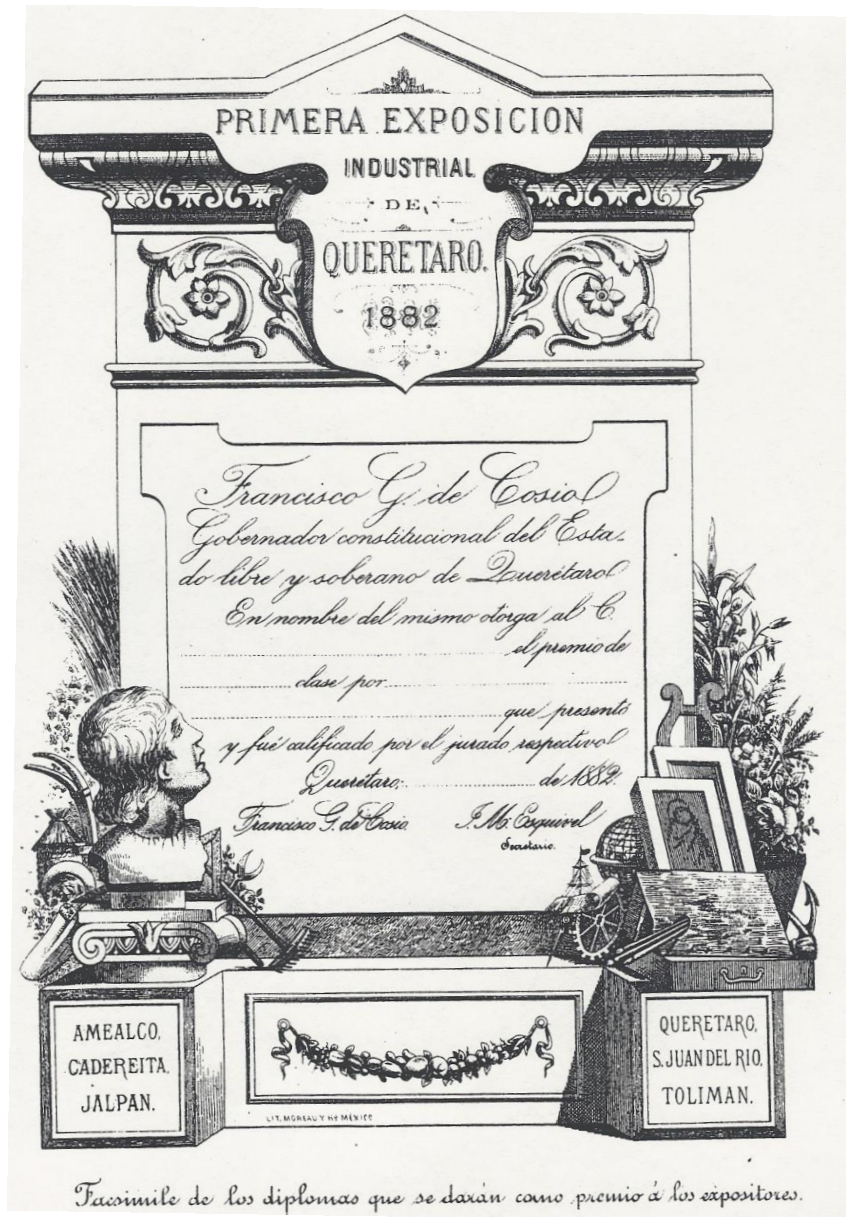 PRIMERA EXPOSICION
INDUSTRIAL
DE
QUERETARO.
1882
Francisco G. de Cosio
Gobernador constitucional del Esta-
do libre y soberano de Querétaro
En nombre del mismo otorga al C.
el premio de
clase por
que presentó
y fué calificado por el jurado respectivo
Querétaro, de 1882.
Francisco G. de Cosio. J. M. Esquivel
Secretario.
AMEALCO,
CADEREITA,
JALPAN.
QUERETARO,
S. JUAN DEL RIO,
TOLIMAN.
LIT. MOREAU Y Hº MÉXICO
Facsimile de los diplomas que se darán como premio á los expositores.